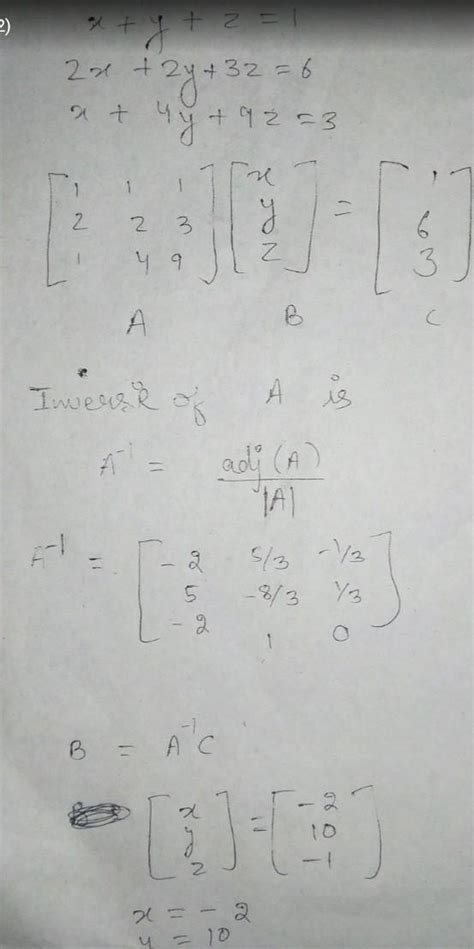 2)
x + y + z = 1
2x + 2y + 3z = 6
x + 4y + 9z = 3
[1 1 1] [x] = [1]
[2 2 3] [y] [6]
[1 4 9] [z] [3]
A B C
Inverse of A is
A⁻¹ = adj(A)
|A|
A⁻¹ = [-2 5/3 -1/3]
[5 -8/3 1/3]
[-2 1 0]
B = A⁻¹C
[x] = [-2]
[y] [10]
[z] [-1]
x = -2
y = 10